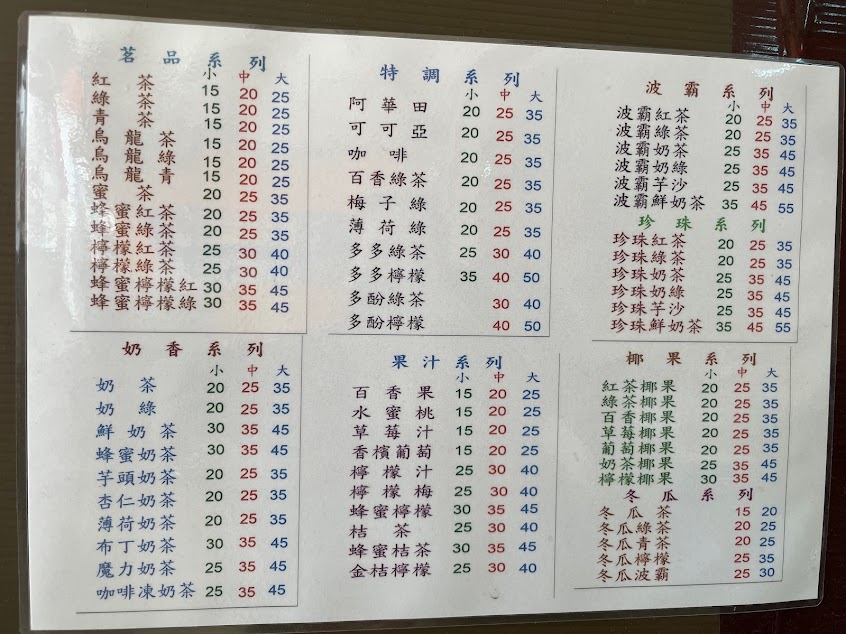 茗品系列
小 中 大
紅茶 15 20 25
綠茶 15 20 25
青茶 15 20 25
烏龍茶 15 20 25
烏龍綠 15 20 25
烏龍青 15 20 25
蜜茶 20 25 35
蜂蜜紅茶 20 25 35
蜂蜜綠茶 20 25 35
檸檬紅茶 25 30 40
檸檬綠茶 25 30 40
蜂蜜檸檬紅 30 35 45
蜂蜜檸檬綠 30 35 45
特調系列
小 中 大
阿華田 20 25 35
可可亞 20 25 35
咖啡 20 25 35
百香綠茶 20 25 35
梅子綠 20 25 35
薄荷綠 20 25 35
多多綠茶 25 30 40
多多檸檬 35 40 50
多酚綠茶 30 40
多酚檸檬 40 50
波霸系列
小 中 大
波霸紅茶 20 25 35
波霸綠茶 20 25 35
波霸奶茶 25 35 45
波霸奶綠 25 35 45
波霸芋沙 25 35 45
波霸鮮奶茶 35 45 55
珍珠系列
珍珠紅茶 20 25 35
珍珠綠茶 20 25 35
珍珠奶茶 25 35 45
珍珠奶綠 25 35 45
珍珠芋沙 25 35 45
珍珠鮮奶茶 35 45 55
奶香系列
小 中 大
奶茶 20 25 35
奶綠 20 25 35
鮮奶茶 30 35 45
蜂蜜奶茶 30 35 45
芋頭奶茶 20 25 35
杏仁奶茶 20 25 35
薄荷奶茶 20 25 35
布丁奶茶 30 35 45
魔力奶茶 25 35 45
咖啡凍奶茶 25 35 45
果汁系列
小 中 大
百香果 15 20 25
水蜜桃 15 20 25
草莓汁 15 20 25
香檳葡萄 15 20 25
檸檬汁 25 30 40
檸檬梅 25 30 40
蜂蜜檸檬 30 35 45
桔茶 25 30 40
蜂蜜桔茶 30 35 45
金桔檸檬 25 30 40
椰果系列
小 中 大
紅茶椰果 20 25 35
綠茶椰果 20 25 35
百香椰果 20 25 35
草莓椰果 20 25 35
葡萄椰果 20 25 35
奶茶椰果 25 35 45
檸檬椰果 30 35 45
冬瓜系列
冬瓜茶 15 20
冬瓜綠茶 20 25
冬瓜青茶 20 25
冬瓜檸檬 25 30
冬瓜波霸 25 30